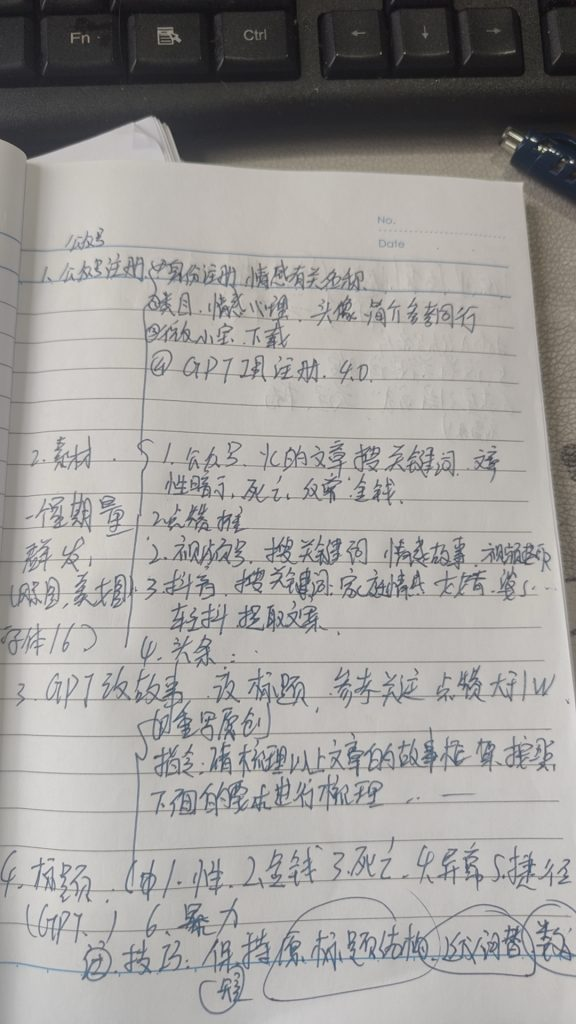 Fn
Ctrl
←
↓
→
No.
Date
公众号
1. 公众号注册 ①身份注册 情感有关名称
②类目. 情感心理. 头像 简介参考同行
下载
④ GPT 注册. 4.0.
2. 素材
1. 公众号. 的文章 搜关键词
性暗示, 死亡, 金钱.
一个星期量
2. 点赞 推
群发,
2. 视频号. 搜关键词 情感故事.
3. 抖音. 搜关键词. 家庭情感
字体16)
轻抖 提取文案.
4. 头条..
3. GPT改故事. 改标题. 参考关注 点赞大于1W
重写原创
指令: 请梳理以上文章的故事框架. 按照
下面的要求进行梳理 .. —
4. 标题. 1. 性. 2. 金钱 3. 死亡. 4. 异常 5. 捷径
(GPT.) 6. 暴力
技巧: 保持原标题结构 词替